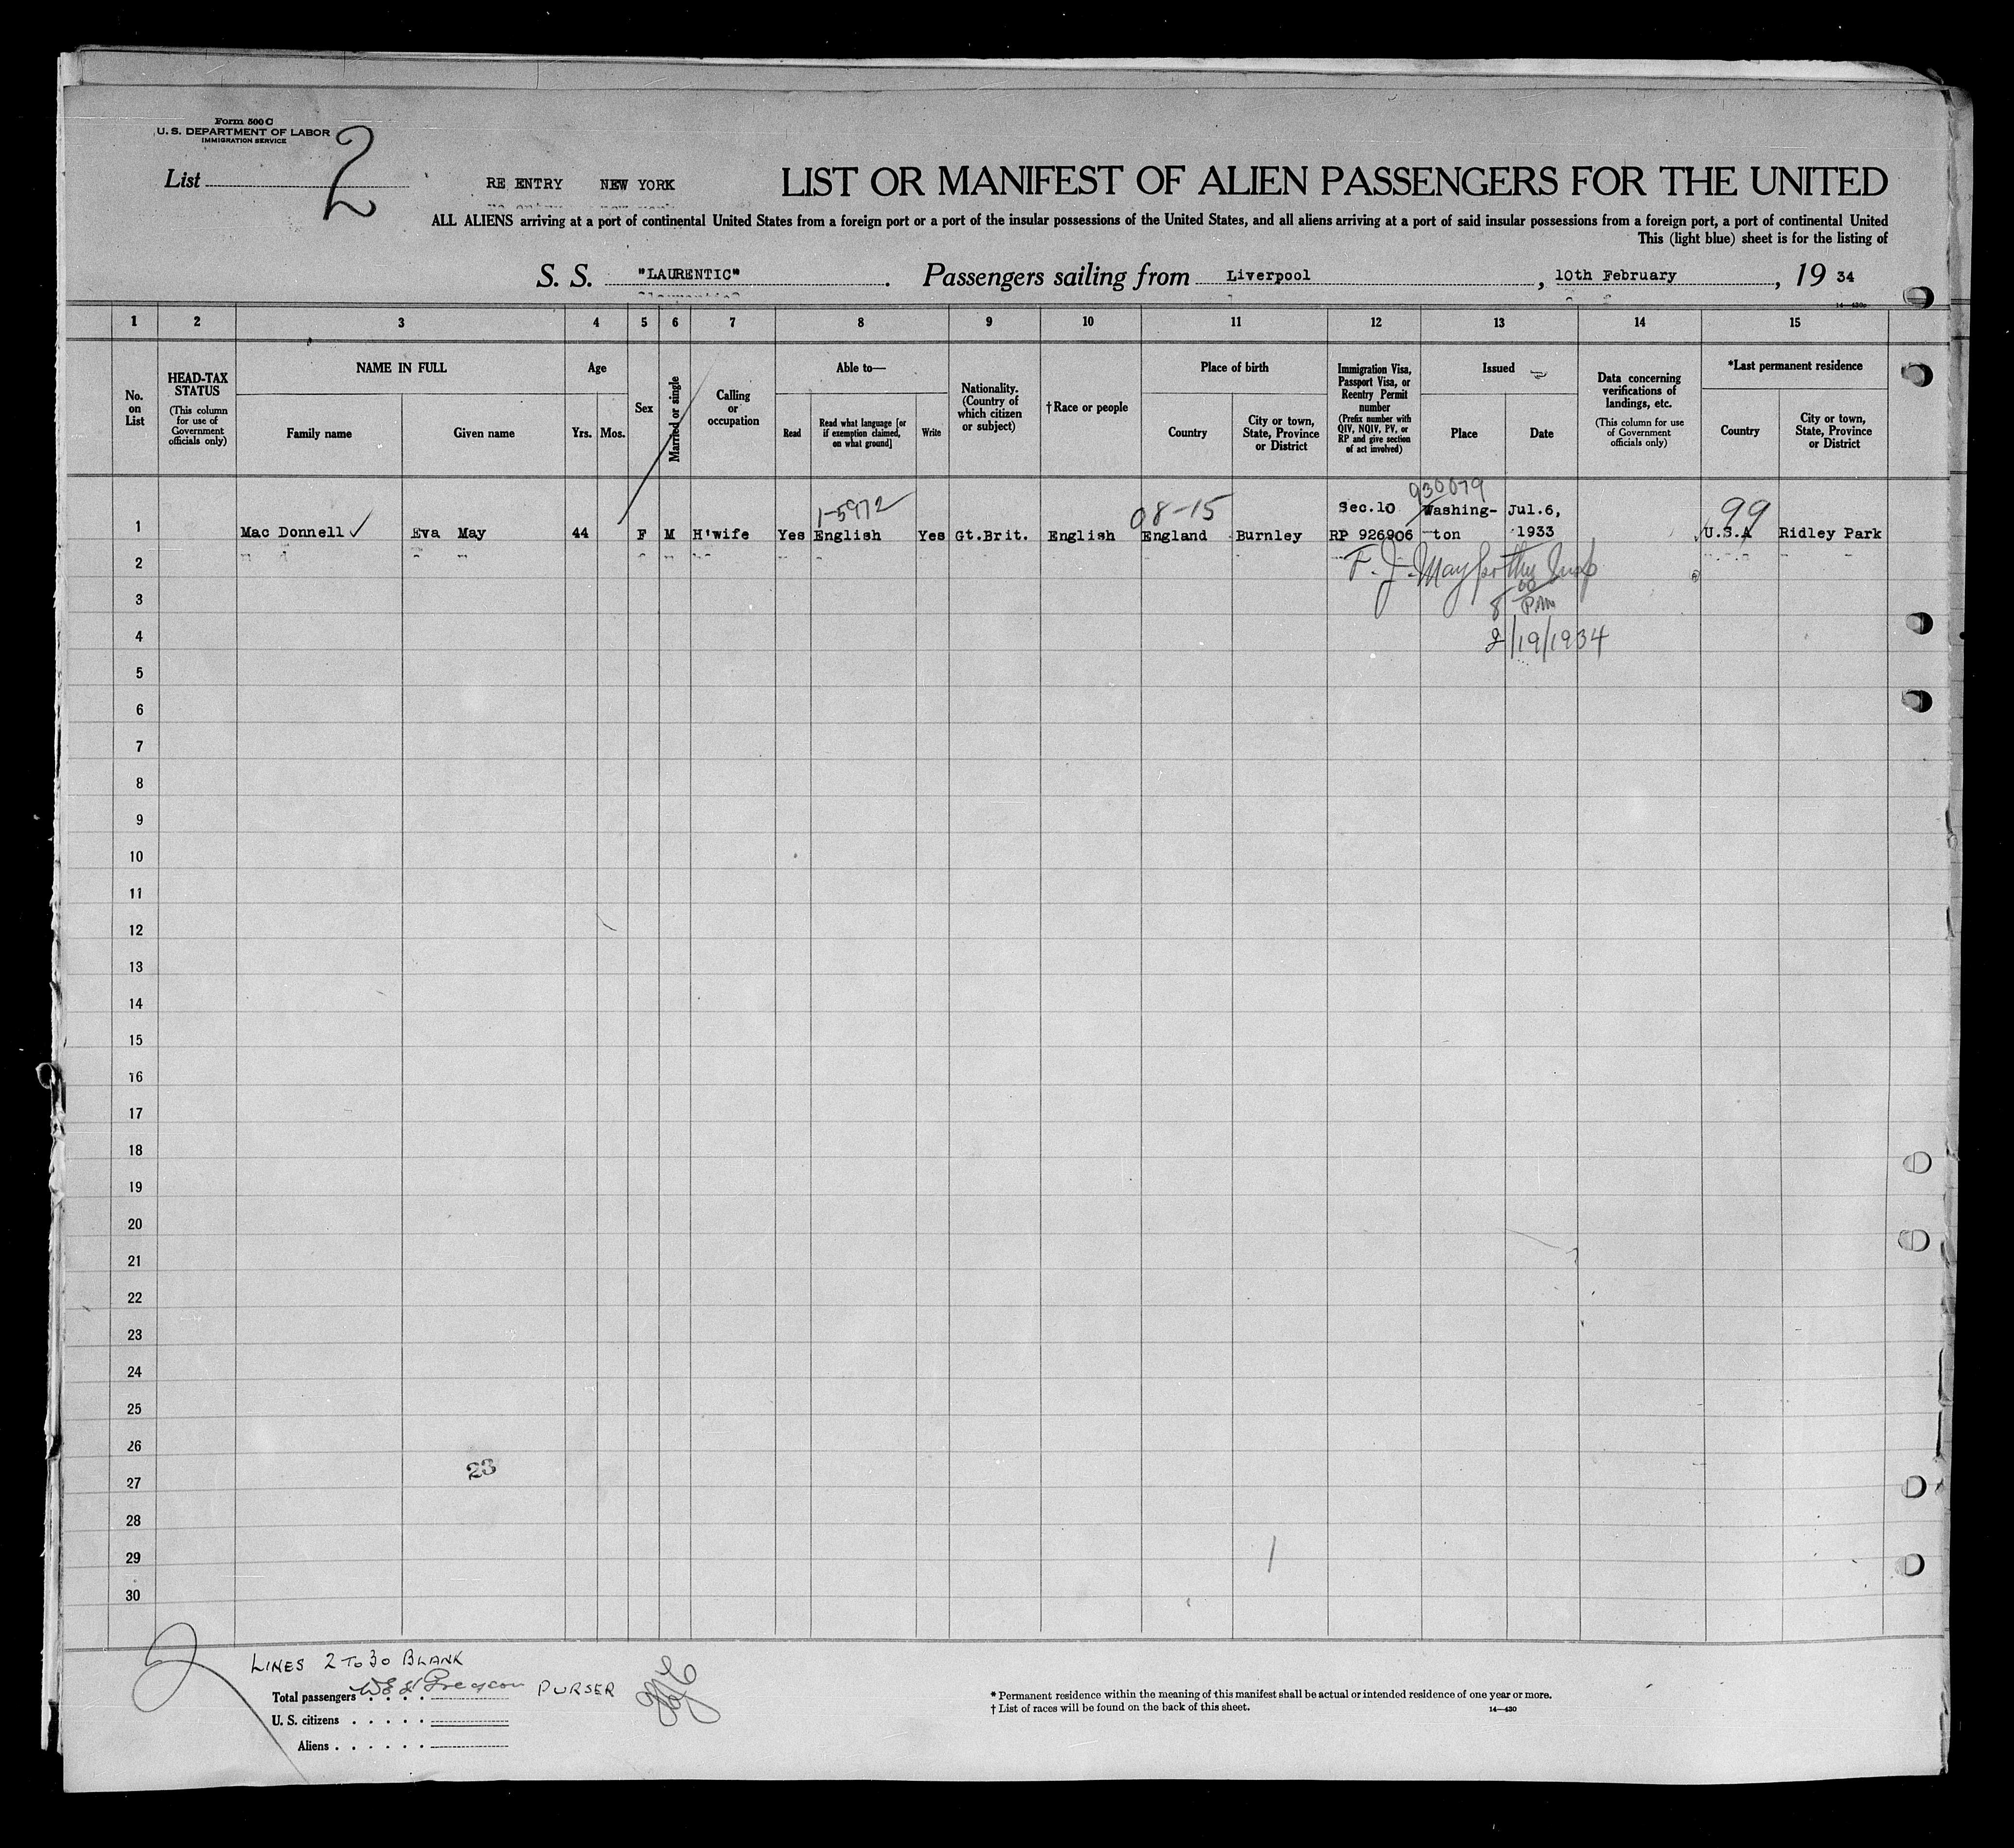 Form 500 C
U. S. DEPARTMENT OF LABOR
IMMIGRATION SERVICE
List 2
RE ENTRY NEW YORK
LIST OR MANIFEST OF ALIEN PASSENGERS FOR THE UNITED
ALL ALIENS arriving at a port of continental United States from a foreign port or a port of the insular possessions of the United States, and all aliens arriving at a port of said insular possessions from a foreign port, a port of continental United
This (light blue) sheet is for the listing of
S. S. "LAURENTIC" . Passengers sailing from Liverpool , 10th February , 19 34
1 2 3 4 5 6 7 8 9 10 11 12 13 14 15
No. on List
HEAD-TAX STATUS
(This column for use of Government officials only)
NAME IN FULL
Family name
Given name
Age
Yrs. Mos.
Sex
Married or single
Calling or occupation
Able to—
Read
Read what language [or if exemption claimed, on what ground]
Write
Nationality. (Country of which citizen or subject)
†Race or people
Place of birth
Country
City or town, State, Province or District
Immigration Visa, Passport Visa, or Reentry Permit number
(Prefix number with QIV, NQIV, PV, or RP and give section of act involved)
Issued
Place
Date
Data concerning verifications of landings, etc.
(This column for use of Government officials only)
*Last permanent residence
Country
City or town, State, Province or District
1-5972 08-15 930079 99
Sec.10 Washing- Jul.6,
1 Mac Donnell ✓ Eva May 44 F M H'wife Yes English Yes Gt.Brit. English England Burnley RP 926906 ton 1933 U.S.A Ridley Park
2
3
8 00 P.M.
4 2/19/1934
5
6
7
8
9
10
11
12
13
14
15
16
17
18
19
20
21
22
23
24
25
26
23
27
28
29
30
2
LINES 2 TO 30 BLANK
PURSER
Total passengers
U. S. citizens
Aliens
* Permanent residence within the meaning of this manifest shall be actual or intended residence of one year or more.
† List of races will be found on the back of this sheet.
14—430